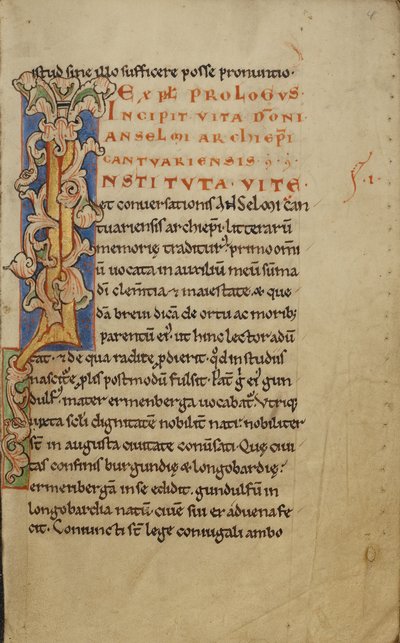 istud sine illo sufficere posse pronuntio.
EXPƚ PROLOGVS.
INCIPIT VITA DOÑI
ANSELMI ARCHIEP̃I
CANTVARIENSIS
INSTITVTA VITĘ
et conuersationis Anselmi can
tuariensis archiep̃i litterarũ
memorię traditur᷒ primo om̃i
ũ uocata in auxiliũ meũ sũma
dĩ clem̃tia & maiestate, quę
dã breui dicã de ortu ac morib;
parentũ ei᷒, ut hinc lector adũ
tat. & de qua radice p̃dierit. qd̃ in studiis
nascit̃e ꝓlis postmodũ fulsit. Pat̃ g̃ ei᷒ gun
dulf᷒, mater ermenberga uocabat᷒. Vtriq;
iuxta sc̃li dignitatem nobilit̃ nati᷒ nobiliter
s̃t in augusta ciuitate conũsati. Quę ciui
tas confinis burgundię & longobardię᷒
ermenbergã in se edidit. gundulfũ in
longobardia natũ, ciuẽ sui ex aduena fe
cit. Coniuncti s̃t lege coniugali ambo